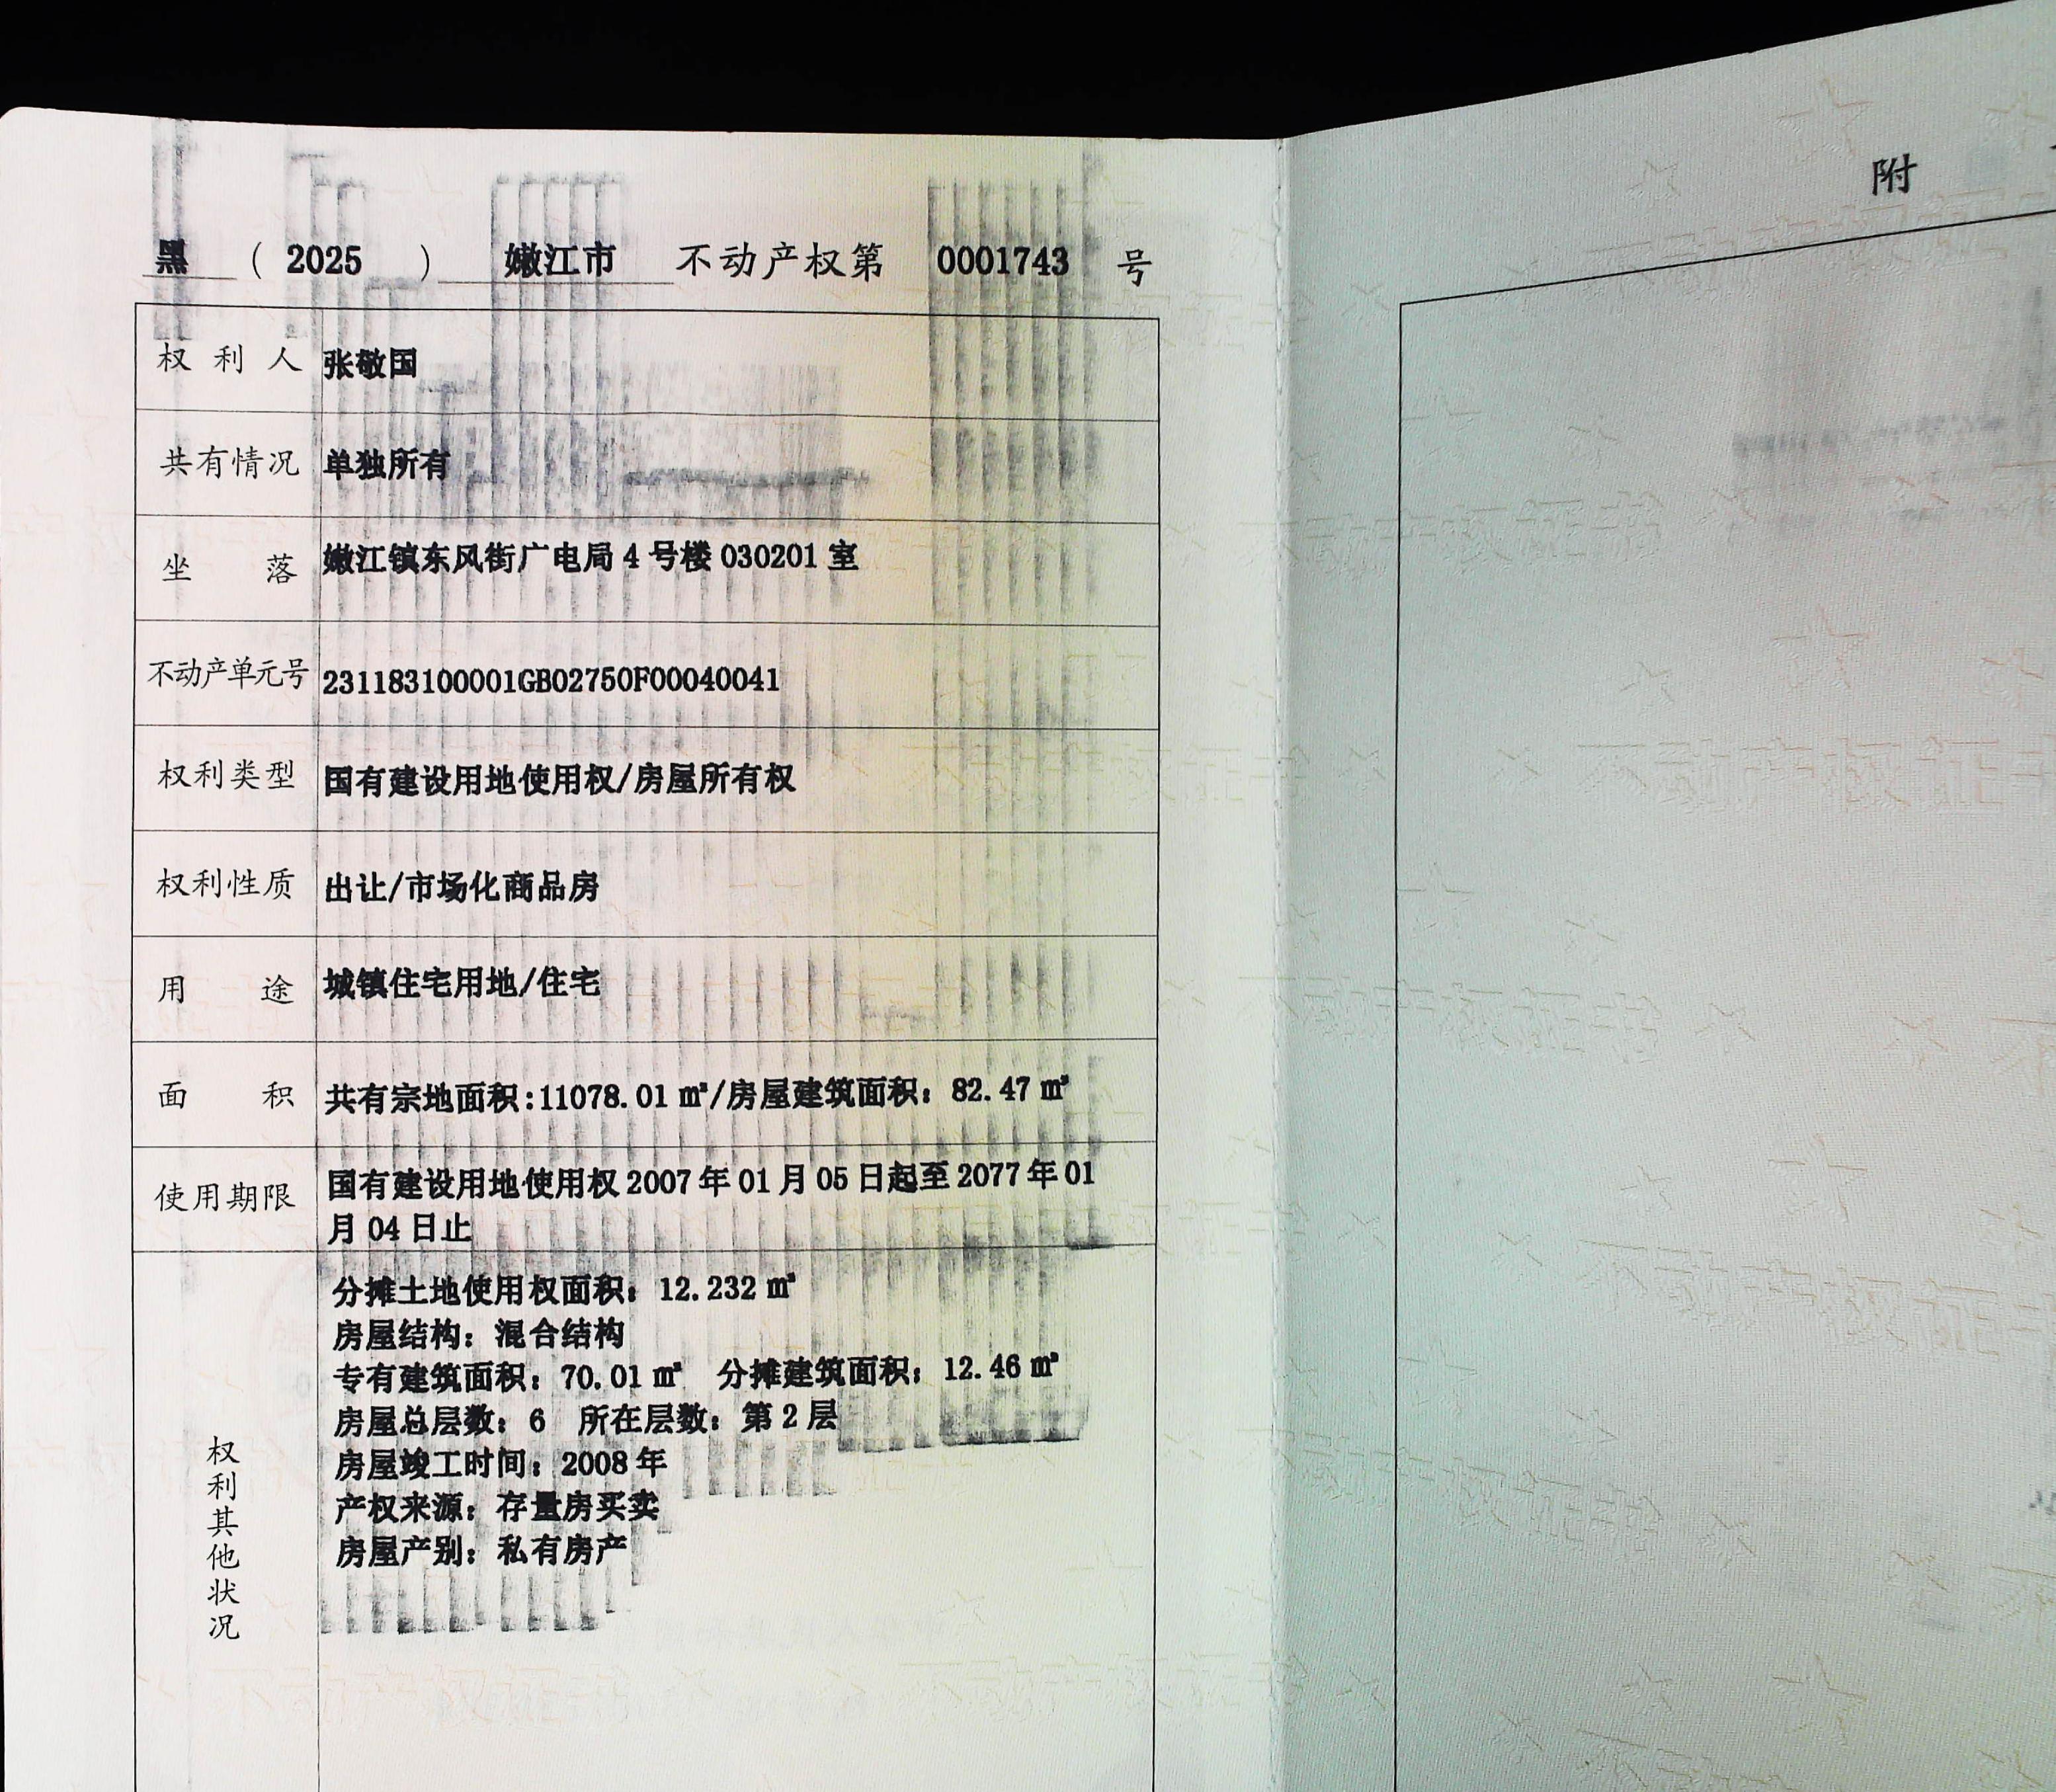 黑 ( 2025 ) 嫩江市 不动产权第 0001743 号
权利人 张敬国
共有情况 单独所有
坐落 嫩江镇东风街广电局 4 号楼 030201 室
不动产单元号 231183100001GB02750F00040041
权利类型 国有建设用地使用权/房屋所有权
权利性质 出让/市场化商品房
用途 城镇住宅用地/住宅
面积 共有宗地面积:11078.01 ㎡/房屋建筑面积：82.47 ㎡
使用期限 国有建设用地使用权 2007 年 01 月 05 日起至 2077 年 01
月 04 日止
权利其他状况
分摊土地使用权面积：12.232 ㎡
房屋结构：混合结构
专有建筑面积：70.01 ㎡ 分摊建筑面积：12.46 ㎡
房屋总层数：6 所在层数：第 2 层
房屋竣工时间：2008 年
产权来源：存量房买卖
房屋产别：私有房产
附